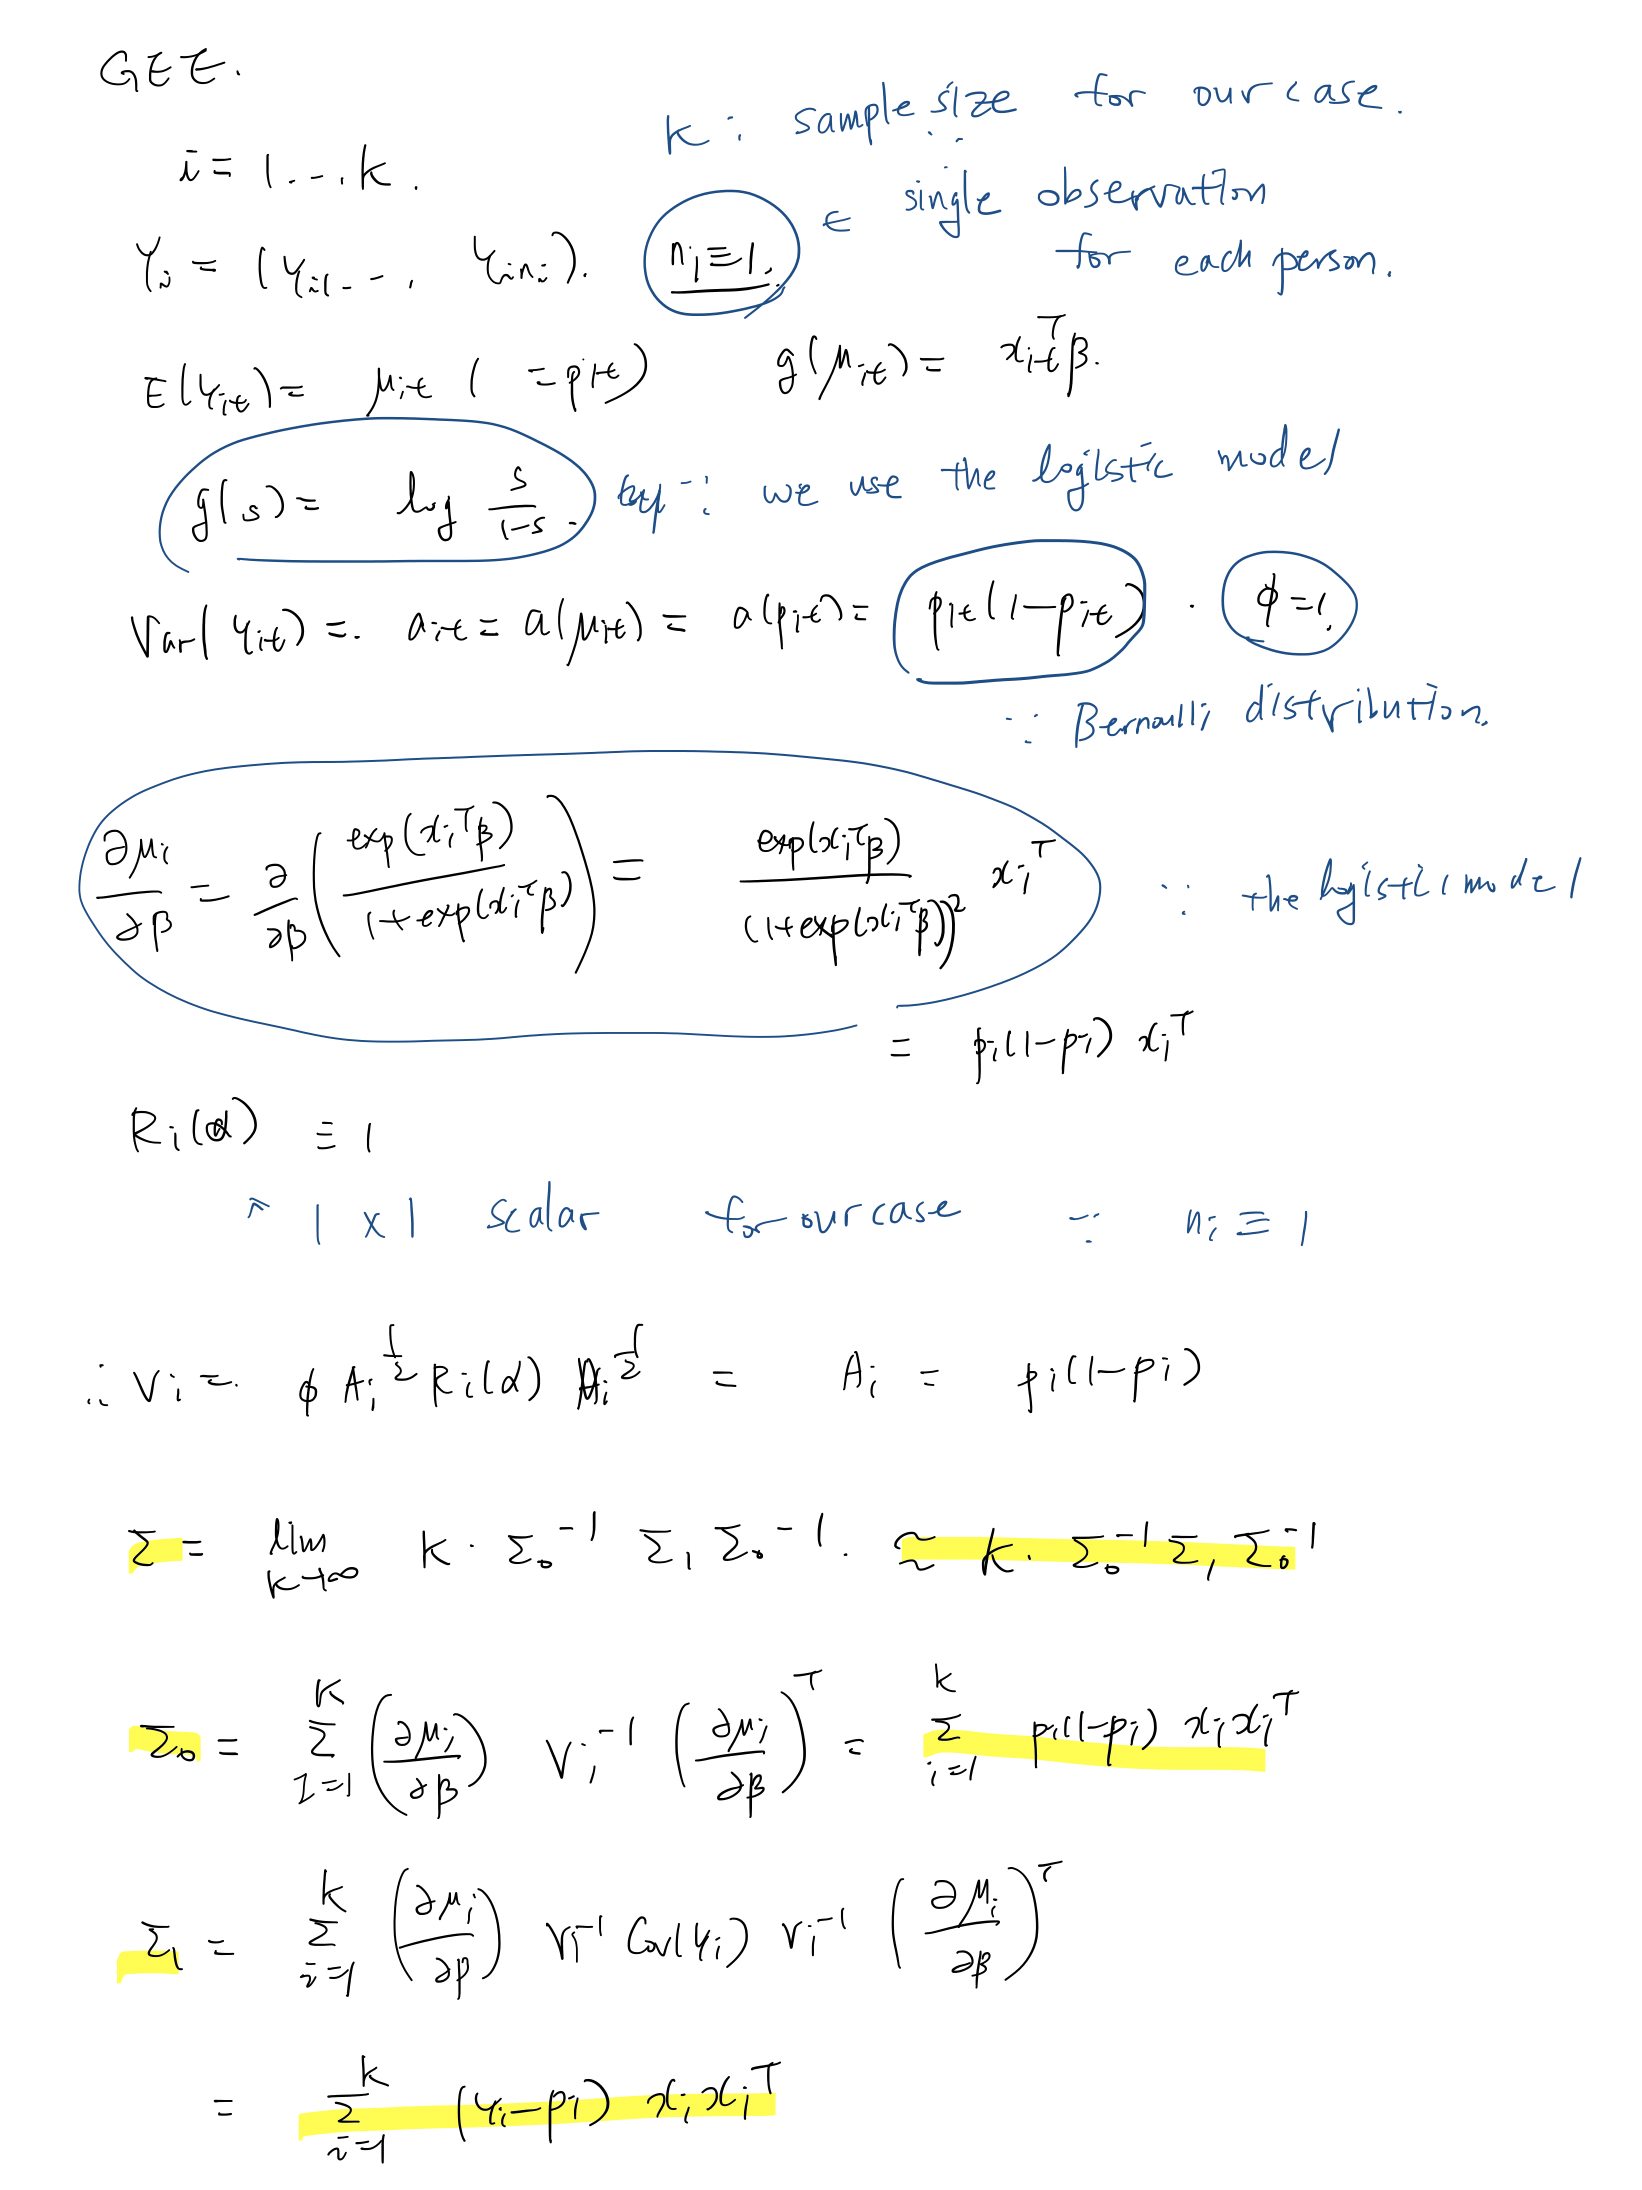 GEE.
K : sample size for our case.
i = 1 ... K.
∵ single observation for each person.
Y_i = (Y_{i1} ..., Y_{in_i}). n_i ≡ 1. ∈
E(Y_{it}) = μ_{it} ( = p_{it}) g(μ_{it}) = x_{it}^T β.
g(s) = log \frac{s}{1-s}. ∵ we use the logistic model
Var(Y_{it}) = a_{it} = a(μ_{it}) = a(p_{it}) = p_{it}(1-p_{it}) . φ = 1.
∵ Bernoulli distribution.
\frac{∂μ_i}{∂β} = \frac{∂}{∂β} ( \frac{exp(x_i^T β)}{1+exp(x_i^T β)} ) = \frac{exp(x_i^T β)}{(1+exp(x_i^T β))^2} x_i^T ∵ the logistic model
= p_i(1-p_i) x_i^T
R_i(α) ≡ 1
^ 1 x 1 scalar for our case ∵ n_i ≡ 1
∴ V_i = φ A_i^{\frac{1}{2}} R_i(α) A_i^{\frac{1}{2}} = A_i = p_i(1-p_i)
Σ = lim_{K→∞} K · Σ_0^{-1} Σ_1 Σ_0^{-1}. ≈ K · Σ_0^{-1} Σ_1 Σ_0^{-1}
Σ_0 = Σ_{i=1}^{K} ( \frac{∂μ_i}{∂β} ) V_i^{-1} ( \frac{∂μ_i}{∂β} )^T = Σ_{i=1}^{K} p_i(1-p_i) x_i x_i^T
Σ_1 = Σ_{i=1}^{K} ( \frac{∂μ_i}{∂β} ) V_i^{-1} Cov(Y_i) V_i^{-1} ( \frac{∂μ_i}{∂β} )^T
= Σ_{i=1}^{K} (Y_i - p_i) x_i x_i^T